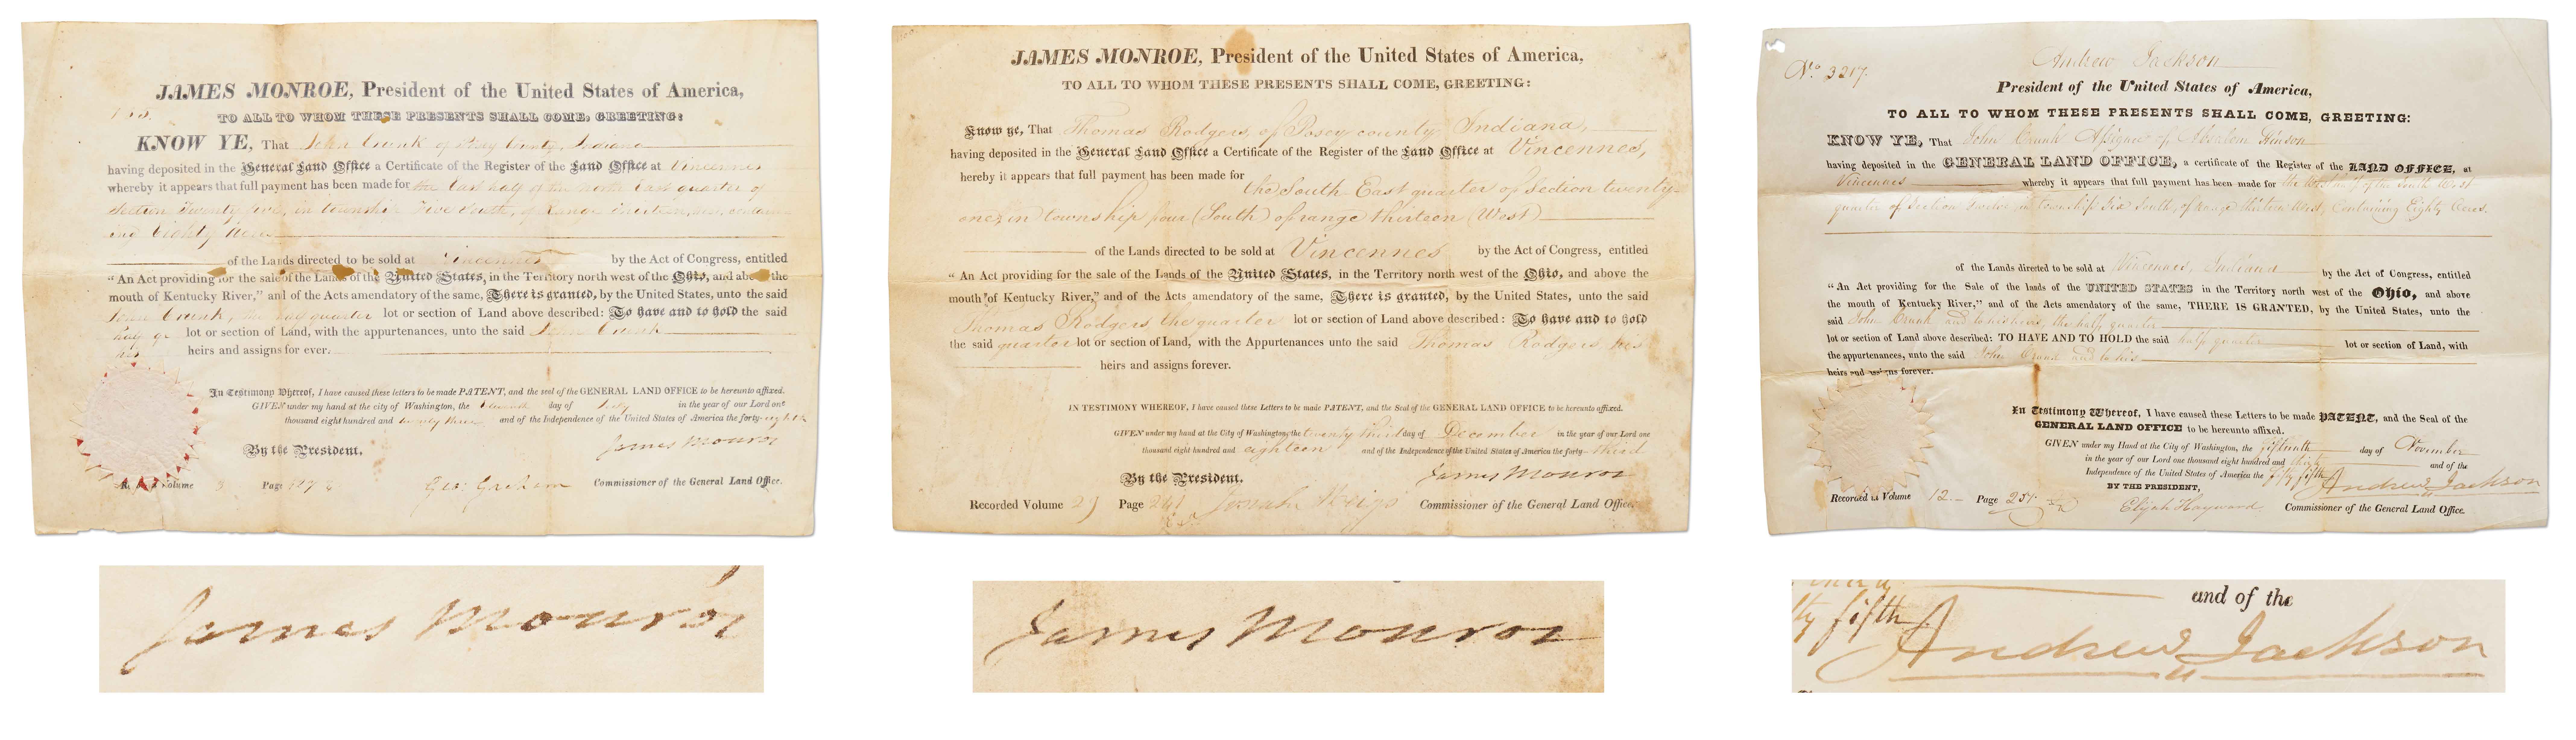 JAMES MONROE, President of the United States of America,
TO ALL TO WHOM THESE PRESENTS SHALL COME, GREETING:
KNOW YE, That John Crunk of Posey County, Indiana
having deposited in the General Land Office a Certificate of the Register of the Land Office at Vincennes
whereby it appears that full payment has been made for the East half of the north East quarter of
Section Twenty five, in township Five South, of Range thirteen, West, contain-
ing Eighty Acres
of the Lands directed to be sold at Vincennes by the Act of Congress, entitled
“An Act providing for the sale of the Lands of the United States, in the Territory north west of the Ohio, and above the
mouth of Kentucky River,” and of the Acts amendatory of the same, There is granted, by the United States, unto the said
John Crunk, the half quarter lot or section of Land above described: To have and to hold the said
half qr lot or section of Land, with the appurtenances, unto the said John Crunk
his heirs and assigns for ever.
In Testimony Whereof, I have caused these letters to be made PATENT, and the seal of the GENERAL LAND OFFICE to be hereunto affixed.
GIVEN under my hand at the city of Washington, the day of in the year of our Lord one
thousand eight hundred and twenty three and of the Independence of the United States of America the forty-eighth
James Monroe
By the President,
Volume Page Geo: Graham Commissioner of the General Land Office.
James Monroe
JAMES MONROE, President of the United States of America,
TO ALL TO WHOM THESE PRESENTS SHALL COME, GREETING:
Know ye, That Thomas Rodgers, of Posey county Indiana,
having deposited in the General Land Office a Certificate of the Register of the Land Office at Vincennes,
hereby it appears that full payment has been made for
the South-East quarter of Section twenty-
one, in township four (South) of range thirteen (West)
of the Lands directed to be sold at Vincennes by the Act of Congress, entitled
“An Act providing for the sale of the Lands of the United States, in the Territory north west of the Ohio, and above the
mouth of Kentucky River,” and of the Acts amendatory of the same, There is granted, by the United States, unto the said
Thomas Rodgers, the quarter lot or section of Land above described: To have and to hold
the said quarter lot or section of Land, with the Appurtenances unto the said Thomas Rodgers, his
heirs and assigns forever.
IN TESTIMONY WHEREOF, I have caused these Letters to be made PATENT, and the Seal of the GENERAL LAND OFFICE to be hereunto affixed.
GIVEN under my hand at the City of Washington, the twenty third day of December in the year of our Lord one
thousand eight hundred and eighteen and of the Independence of the United States of America the forty-third
James Monroe
By the President.
Recorded Volume Page 241 Josiah Meigs Commissioner of the General Land Office.
James Monroe
No. 3217.
Andrew Jackson
President of the United States of America,
TO ALL TO WHOM THESE PRESENTS SHALL COME, GREETING:
KNOW YE, That John Crunk Assignee of Absalom
having deposited in the GENERAL LAND OFFICE, a certificate of the Register of the LAND OFFICE, at
Vincennes whereby it appears that full payment has been made for the West half of the South West
quarter of Section Twelve, in township Six South, of range thirteen West, Containing Eighty Acres.
of the Lands directed to be sold at Vincennes, Indiana by the Act of Congress, entitled
“An Act providing for the Sale of the lands of the UNITED STATES in the Territory north west of the Ohio, and above
the mouth of Kentucky River,” and of the Acts amendatory of the same, THERE IS GRANTED, by the United States, unto the
said John Crunk and to his heirs, the half quarter
lot or section of Land above described: TO HAVE AND TO HOLD the said half quarter lot or section of Land, with
the appurtenances, unto the said John Crunk and to his
heirs and assigns forever.
In Testimony Whereof, I have caused these Letters to be made PATENT, and the Seal of the
GENERAL LAND OFFICE to be hereunto affixed.
GIVEN under my Hand at the City of Washington, the fifteenth day of November
in the year of our Lord one thousand eight hundred and thirty and of the
Independence of the United States of America the fifty fifth
Andrew Jackson
BY THE PRESIDENT,
Recorded in Volume 12 Page 251 Elijah Hayward Commissioner of the General Land Office.
and of the
ty fifth
Andrew Jackson